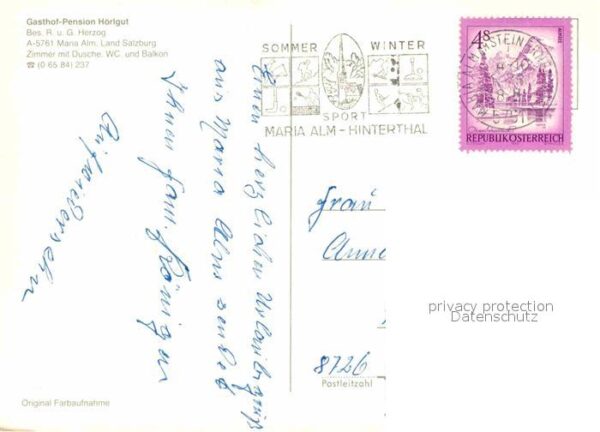 Gasthof-Pension Hörlgut
Bes. R. u. G. Herzog
A-5761 Maria Alm, Land Salzburg
Zimmer mit Dusche, WC, und Balkon
☎ (0 65 84) 237
SOMMER WINTER
SPORT
MARIA ALM-HINTERTHAL
4S
REPUBLIK ÖSTERREICH
Einen herzlichen Urlaubsgruß
aus Maria Alm sendet
Ihnen Fam.
Auf Wiedersehn
Frau
Anne
8726
Postleitzahl
privacy protection
Datenschutz
Original Farbaufnahme